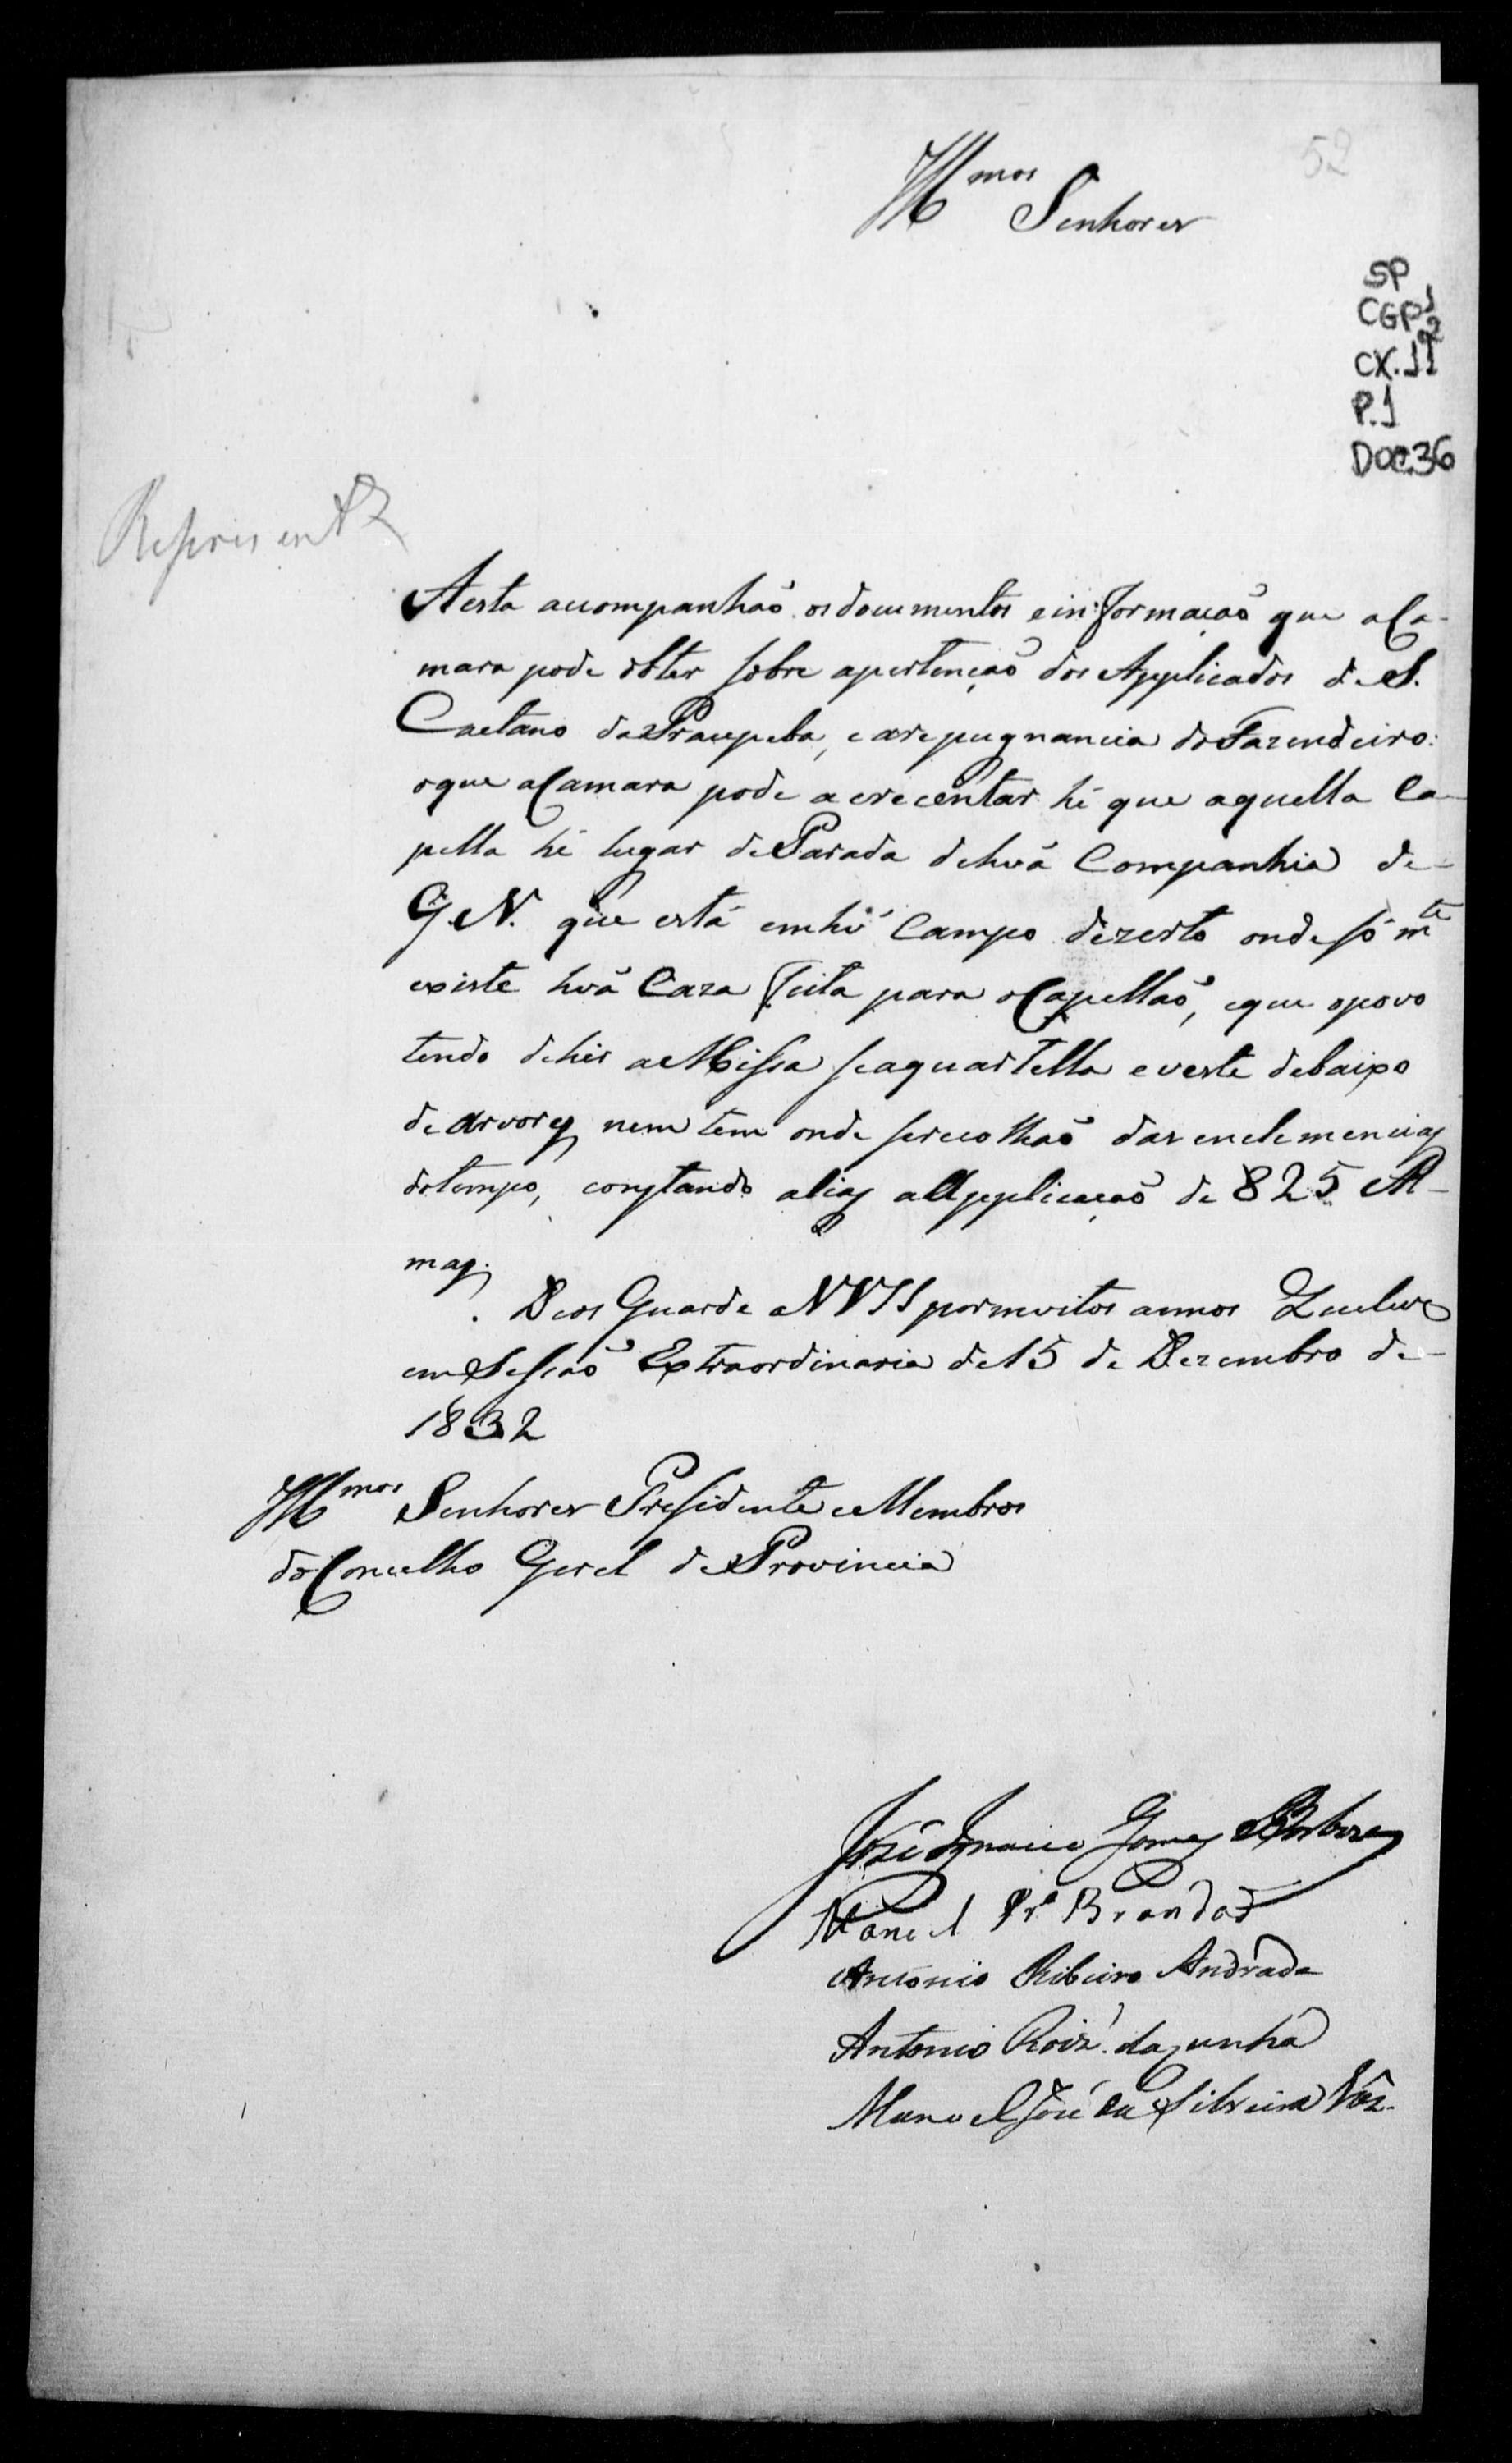 52
Illmos
Senhores
SP
CGP 1
2
CX. 11
P. 1
DOC. 36
Represent
Aesta acompanhaõ os documentos e informaçaõ que a Ca-
mara pode obter sobre apertençaõ dos Applicados de S.
Caetano da Praupeba, e arepugnancia do Fazendeiro:
oque a Camara pode acrecentar hé que aquella Ca-
pella hé lugar de Parada de huã Companhia de-
G. N. que está em hũ Campo dezerto onde só mte
existe huã Caza feita para o Capellaõ, eque opovo
tendo de hir a Missa seaquartella e veste debaixo
de arvores nem tem onde serecolhaõ das enclemencias
do tempo, constando alias a Applicaçaõ de 825 Al-
mas.
Deos Guarde a VVSS por muitos annos Queluz
em Sessaõ Extraordinaria de 15 de Dezembro de-
1832
Illmos Senhores Presidente e Membros
do Concelho Geral de Provincia
José Ignacio Gomes Barboza
Manoel Pra Brandaõ
Antonio Ribeiro Andrade
Antonio Roiz' da Cunha
Manoel José da Silveira Váz.